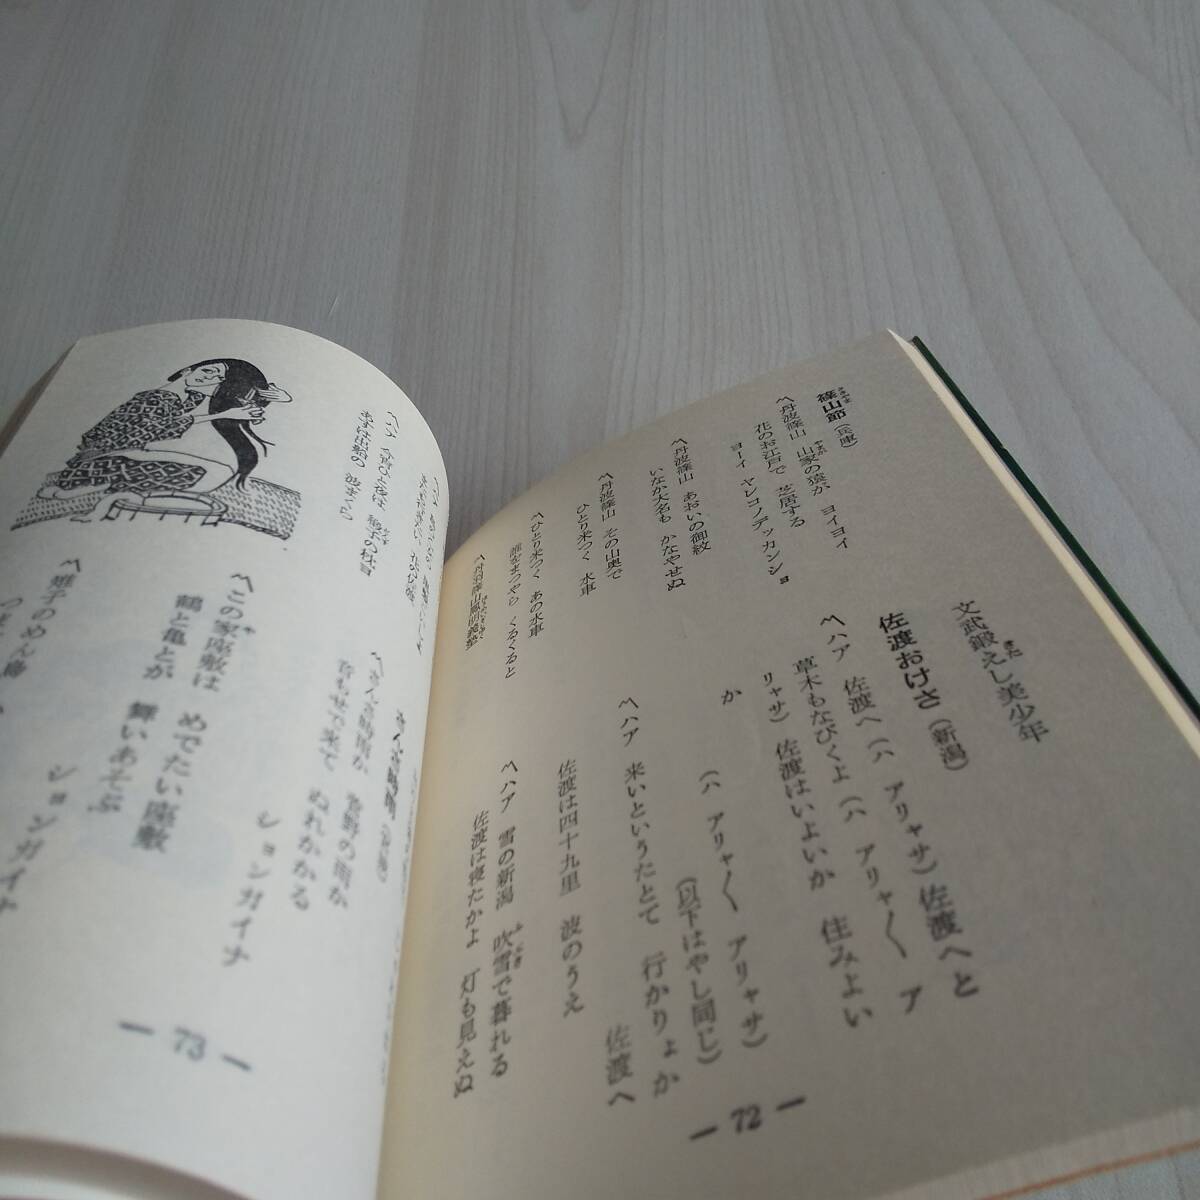 篠山節（兵庫）
〽丹波篠山　山家の猿が　ヨイヨイ
花のお江戸で　芝居する
ヨーイ　ヤレコノデッカンショ
〽丹波篠山　あおいの御紋
いなか大名も　かなやせぬ
〽丹波篠山　その山奥で
ひとり米つく　水車
〽ひとり米つく　あの水車
誰をまつやら　くるくると
〽丹羽篠山鳳明義塾
文武鍛えし美少年
佐渡おけさ（新潟）
〽ハア　佐渡へ（ハ　アリャサ）佐渡へと
草木もなびくよ（ハ　アリャ〱　ア
リャサ）佐渡はいよいか　住みよい
か
（ハ　アリャ〱　アリャサ）
（以下はやし同じ）
〽ハア　来いというたとて　行かりょか
佐渡へ
佐渡は四十九里　波のうえ
〽ハア　雪の新潟　吹雪で暮れる
佐渡は寝たかよ　灯も見えぬ
— 72 —
〽ハア　今宵ひと夜は　緞子の枕よ
あすは出船の　波まくら
さんさ時雨
〽さんさ時雨か　萱野の雨か
音もせで来て　ぬれかかる
ションガイナ
〽この家座敷は　めでたい座敷
鶴と亀とが　舞いあそぶ
ションガイナ
〽雉子のめん鳥
— 73 —